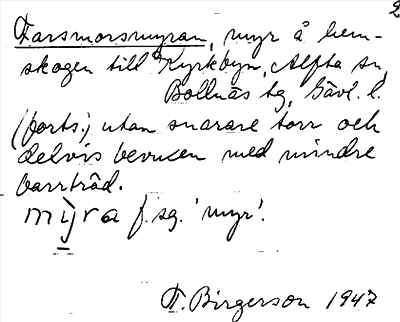 2
Farsmorsmyran, myr å hem-
skogen till Kyrkbyn, Alfta sn,
Bollnäs tg, Gävl. l.
(forts.) utan snarare torr och
delvis bevuxen med mindre
barrträd.
mỳra f. sg. 'myr'.
F. Birgerson 1947